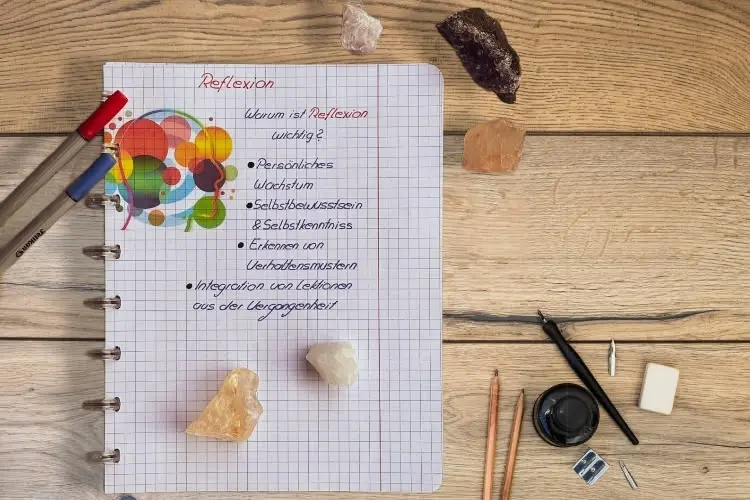 Reflexion
Warum ist Reflexion
wichtig?
• Persönliches
Wachstum
• Selbstbewusstsein
& Selbstkenntniss
• Erkennen von
Verhaltensmustern
• Integration von Lektionen
aus der Vergangenheit